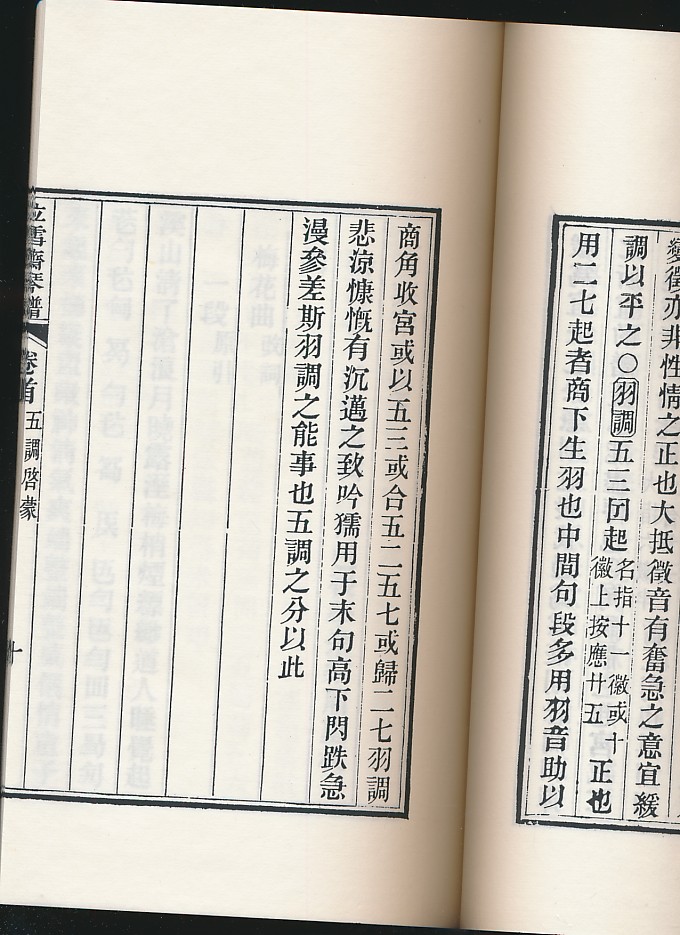 變徵亦非性情之正也大抵徵音有奮急之意宜緩
調以平之○羽調五三囘起名指十一徽或十徽上按應廿五正也
用二七起者商下生羽也中間句段多用羽音助以
商角收宮或以五三或合五二五七或歸二七羽調
悲涼慷慨有沉邁之致吟猱用于末句高下閃跌急
漫參差斯羽調之能事也五調之分以此
立雪齋琴譜
卷首
五調啓蒙
十